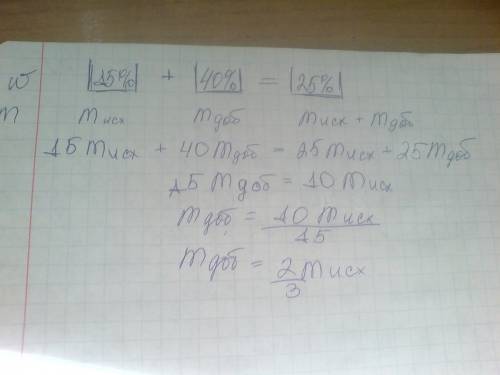 w |15%| + |40%| = |25%|
m mисх mдоб mисх + mдоб
15 mисх + 40 mдоб = 25 mисх + 25 mдоб
15 mдоб = 10 mисх
mдоб = 10 mисх / 15
mдоб = 2/3 mисх